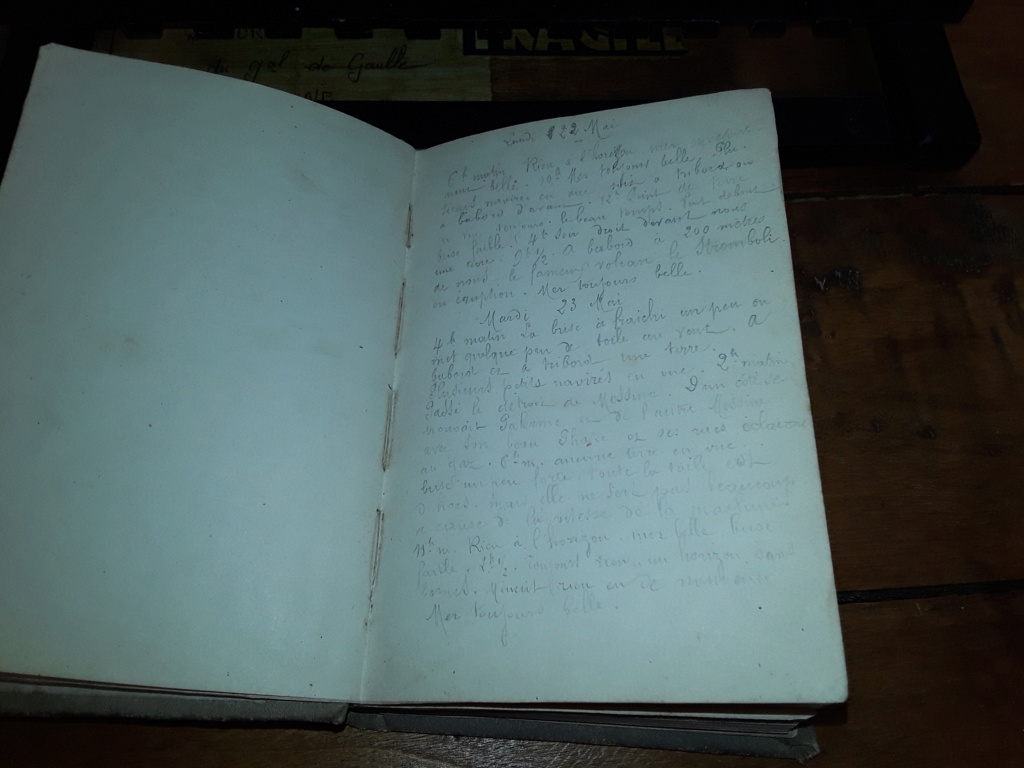 du gal de Gaulle
FRAGILE
Lundi 22 Mai
6h matin. Rien à l'horizon mer
belle. 10h Mer toujours belle. Plu-
sieurs navires en vue soit à tribord ou
à babord d'avant. 12h Point de terre
en vue toujours le beau temps. Tout
brise faible. 4h Son droit devant nous
une terre. 9h 1/2 A babord à 200 mètres
de nous le fameux volcan le Stromboli
en éruption. Mer toujours belle.
Mardi 23 Mai
4h matin La brise à fraichi un peu on
met quelque peu de toile au vent. A
babord et à tribord une terre.
Plusieurs petits navires en vue. 2h matin
Passé le détroit de Messine. D'un côté se
trouvait et de l'autre Messine
avec son beau Phare et ses rues éclairées
au gaz. 6h m. aucune terre en vue
brise un peu forte, toute la toile est
dehors, mais elle ne sert pas beaucoup
à cause de la vitesse de la machine
11h m. Rien à l'horizon. mer belle brise
faible. rien un horizon sans
bornes. Minuit: rien en de nouveau
Mer toujours belle.